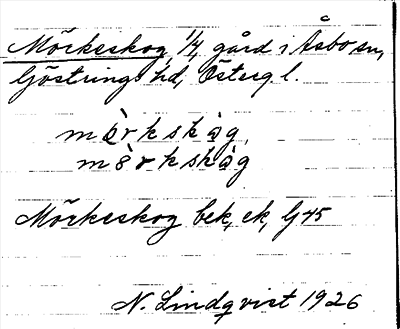 Mörkeskog 1/4, gård i Åsbo sn,
Göstrings hd, Österg. l.
mö̀rkskog,
mö̀rkskog
Mörkeskog bek, ek, G 45
N. Lindqvist 1926